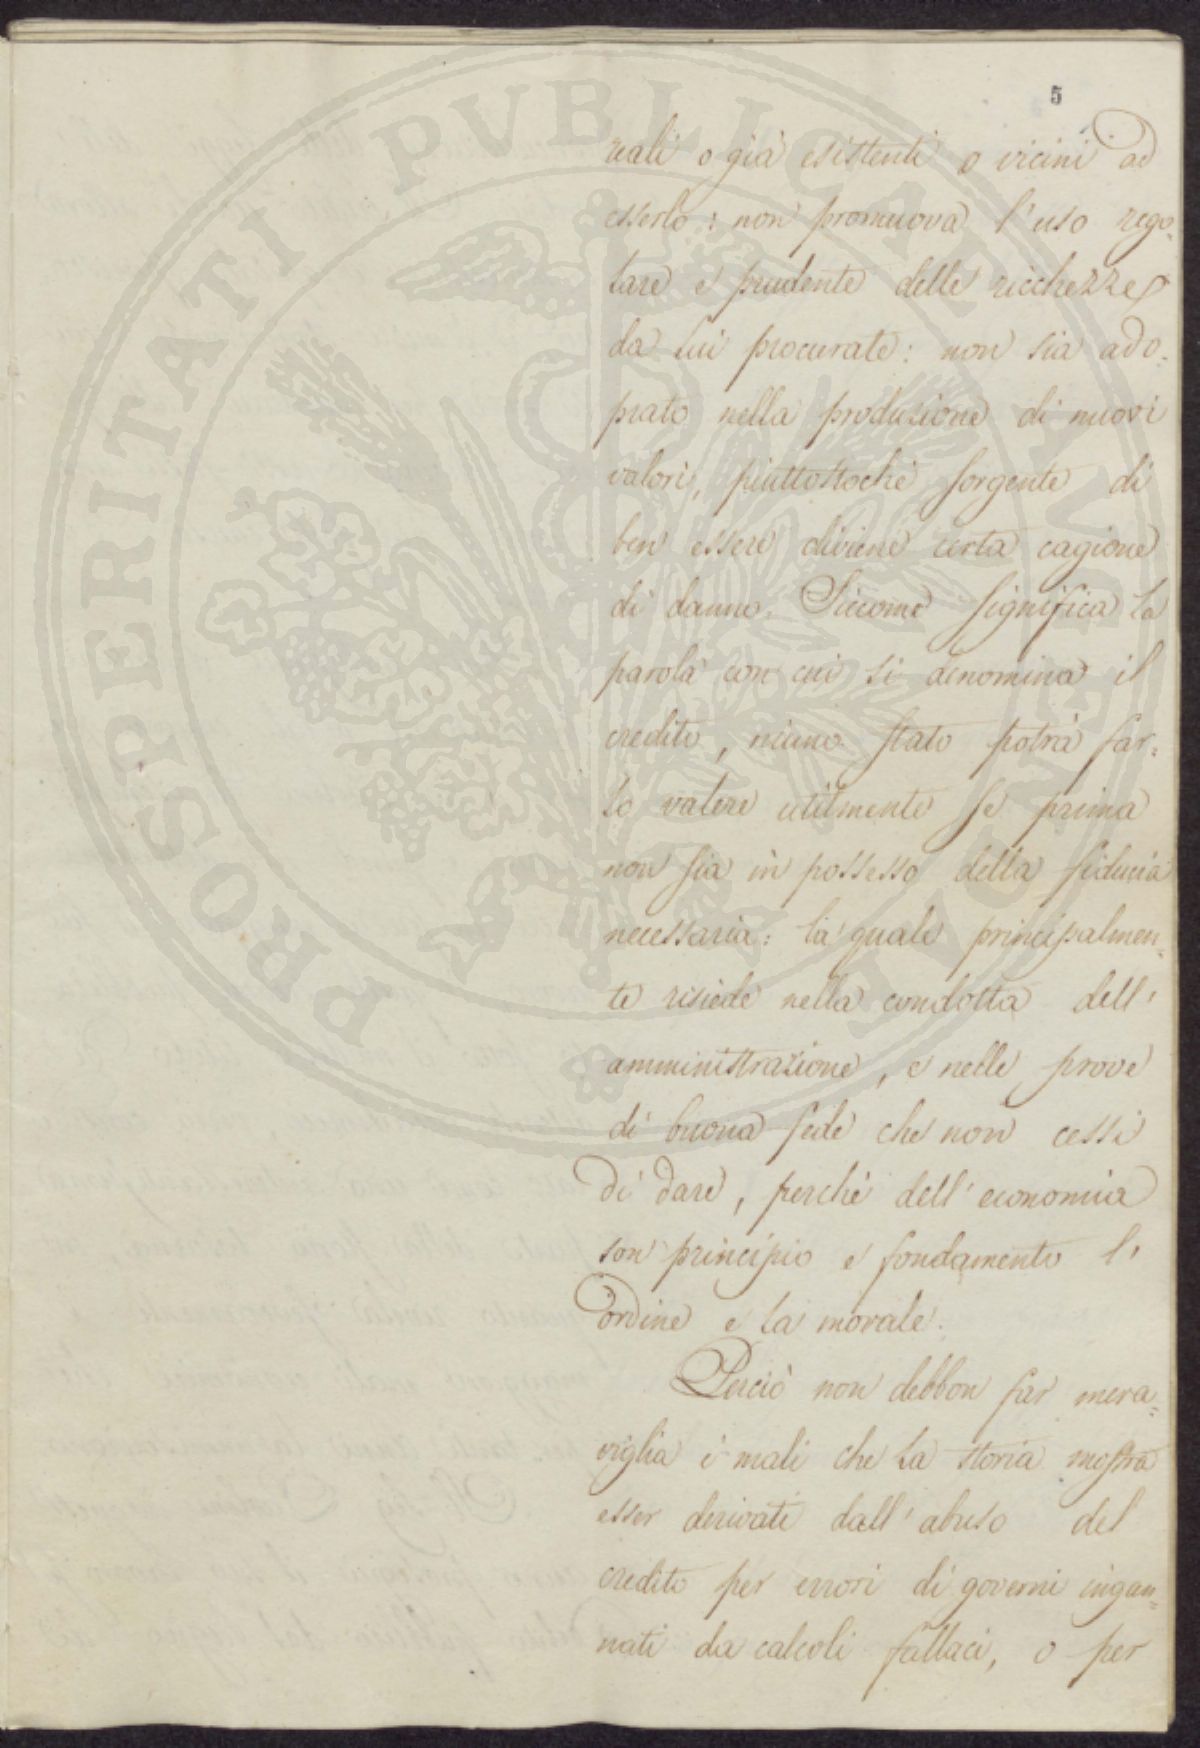 5
reali o già esistenti o vicini ad
esserlo: non promuova l'uso rego=
lare e prudente delle ricchezze
da lui procurate: non sia ado=
prato nella produzione di nuovi
valori, piuttostochè sorgente di
ben essere diviene certa cagione
di danno. Siccome significa la
parola con cui si denomina il
credito, niuno stato potrà far=
lo valere utilmente se prima
non sia in possesso della fiducia
necessaria: la quale principalmen=
te risiede nella condotta dell'
amministrazione, e nelle prove
di buona fede che non cessi
di dare, perchè dell'economia
son principio e fondamento l'
ordine e la morale.
Perciò non debbon far mera=
viglia i mali che la storia mostra
esser derivati dall'abuso del
credito per errori di governi ingan=
nati da calcoli fallaci, o per
PROSPERITATI PVBLICAE AVGENDAE